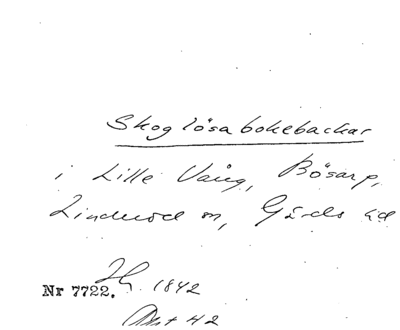 Skoglösa bokebackar
i Lille Vång, Bösarp,
Linderöd sn, Gärds hd
Nr 7722. 1842
42